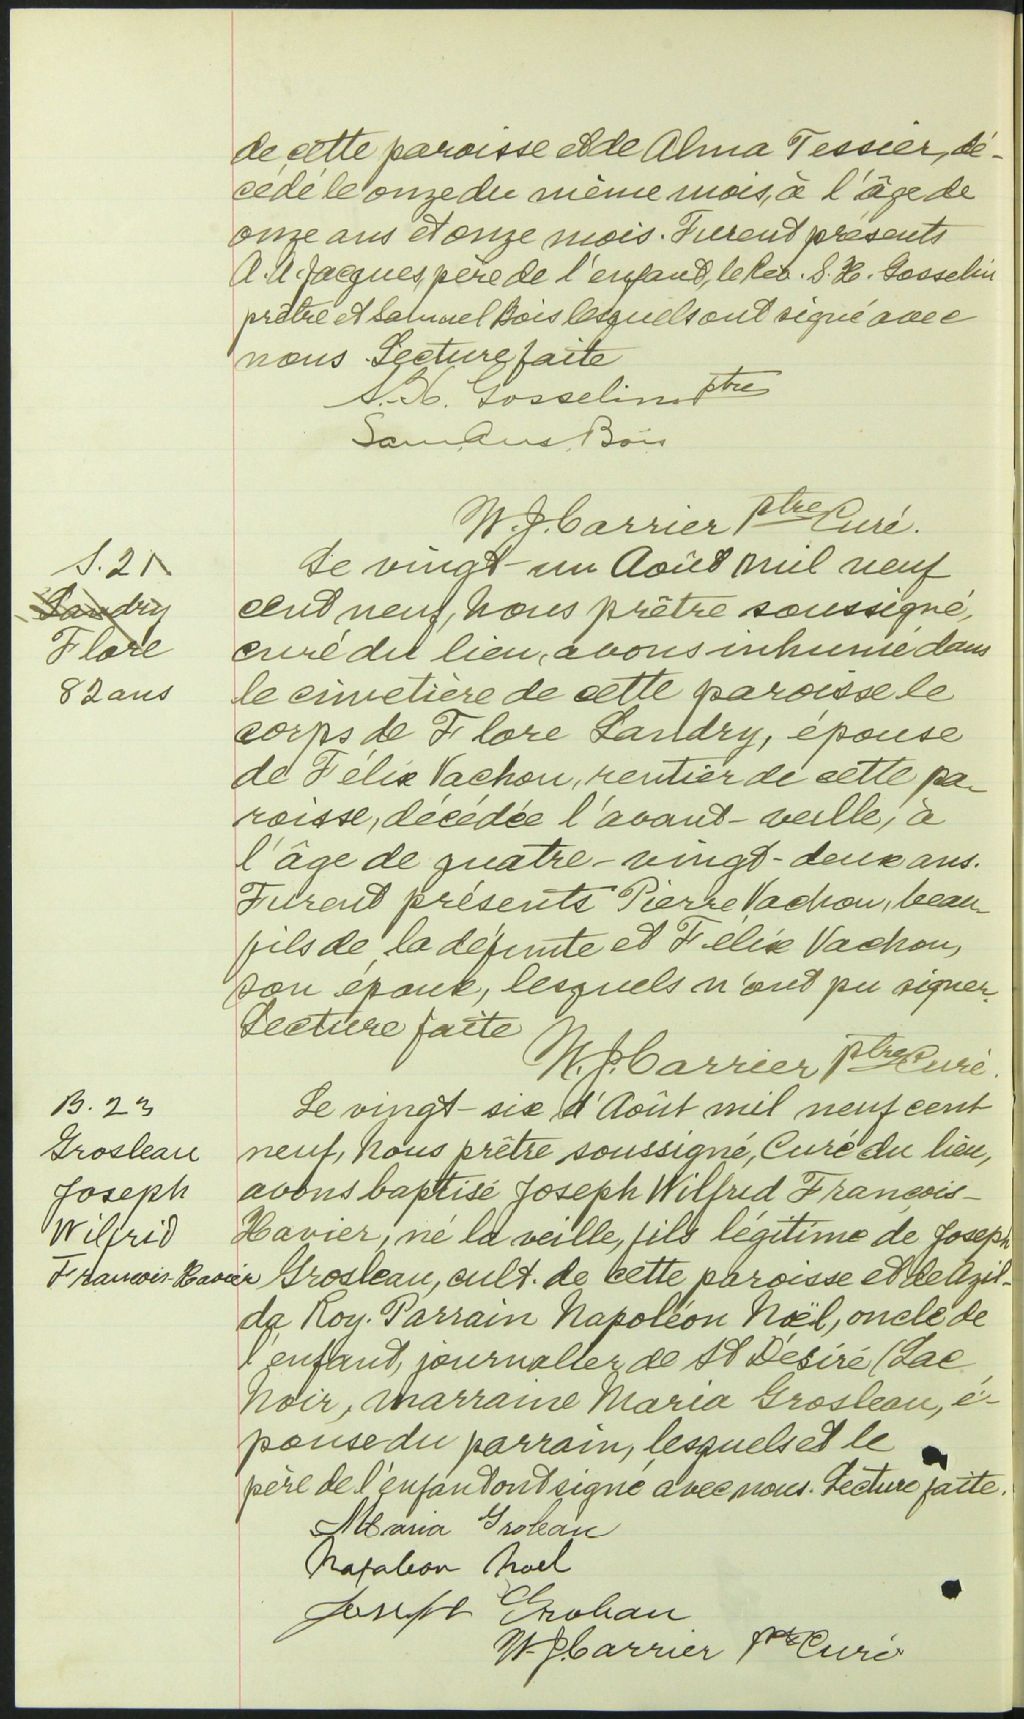 de cette paroisse et de Alma Tessier, dé-
cédé le onze du même mois, à l'âge de
onze ans et onze mois. Furent présents
A. A. Jacques, père de l'enfant, le Rév. S. H. Gosselin
prêtre et Samuel Bois lesquels ont signé avec
nous. Lecture faite
S. H. Gosselin ptre
Bois
W. J. Carrier ptre Curé.
S. 21
Landry
Flore
82 ans
Le vingt-un Août mil neuf
cent neuf, Nous prêtre soussigné,
curé du lieu, avons inhumé dans
le cimetière de cette paroisse le
corps de Flore Landry, épouse
de Félix Vachon, rentier de cette pa-
roisse, décédée l'avant-veille, à
l'âge de quatre-vingt-deux ans.
Furent présents Pierre Vachon, beau-
fils de la défunte et Félix Vachon,
son époux, lesquels n'ont pu signer.
Lecture faite
W. J. Carrier ptre Curé.
B. 23
Grosleau
Joseph
Wilfrid
François-Xavier
Le vingt-six d'Août mil neuf cent
neuf, Nous prêtre soussigné, Curé du lieu,
avons baptisé Joseph Wilfrid François-
Xavier, né la veille, fils légitime de Joseph
Grosleau, cult. de cette paroisse et de Azil-
da Roy. Parrain Napoléon Noël, oncle de
l'enfant, journalier de St Désiré (Lac
Noir, marraine Maria Grosleau, é-
pouse du parrain, lesquels et le
père de l'enfant ont signé avec nous. Lecture faite.
Maria Groleau
Napoleon Noel
Joseph Groleau
W. J. Carrier ptre Curé